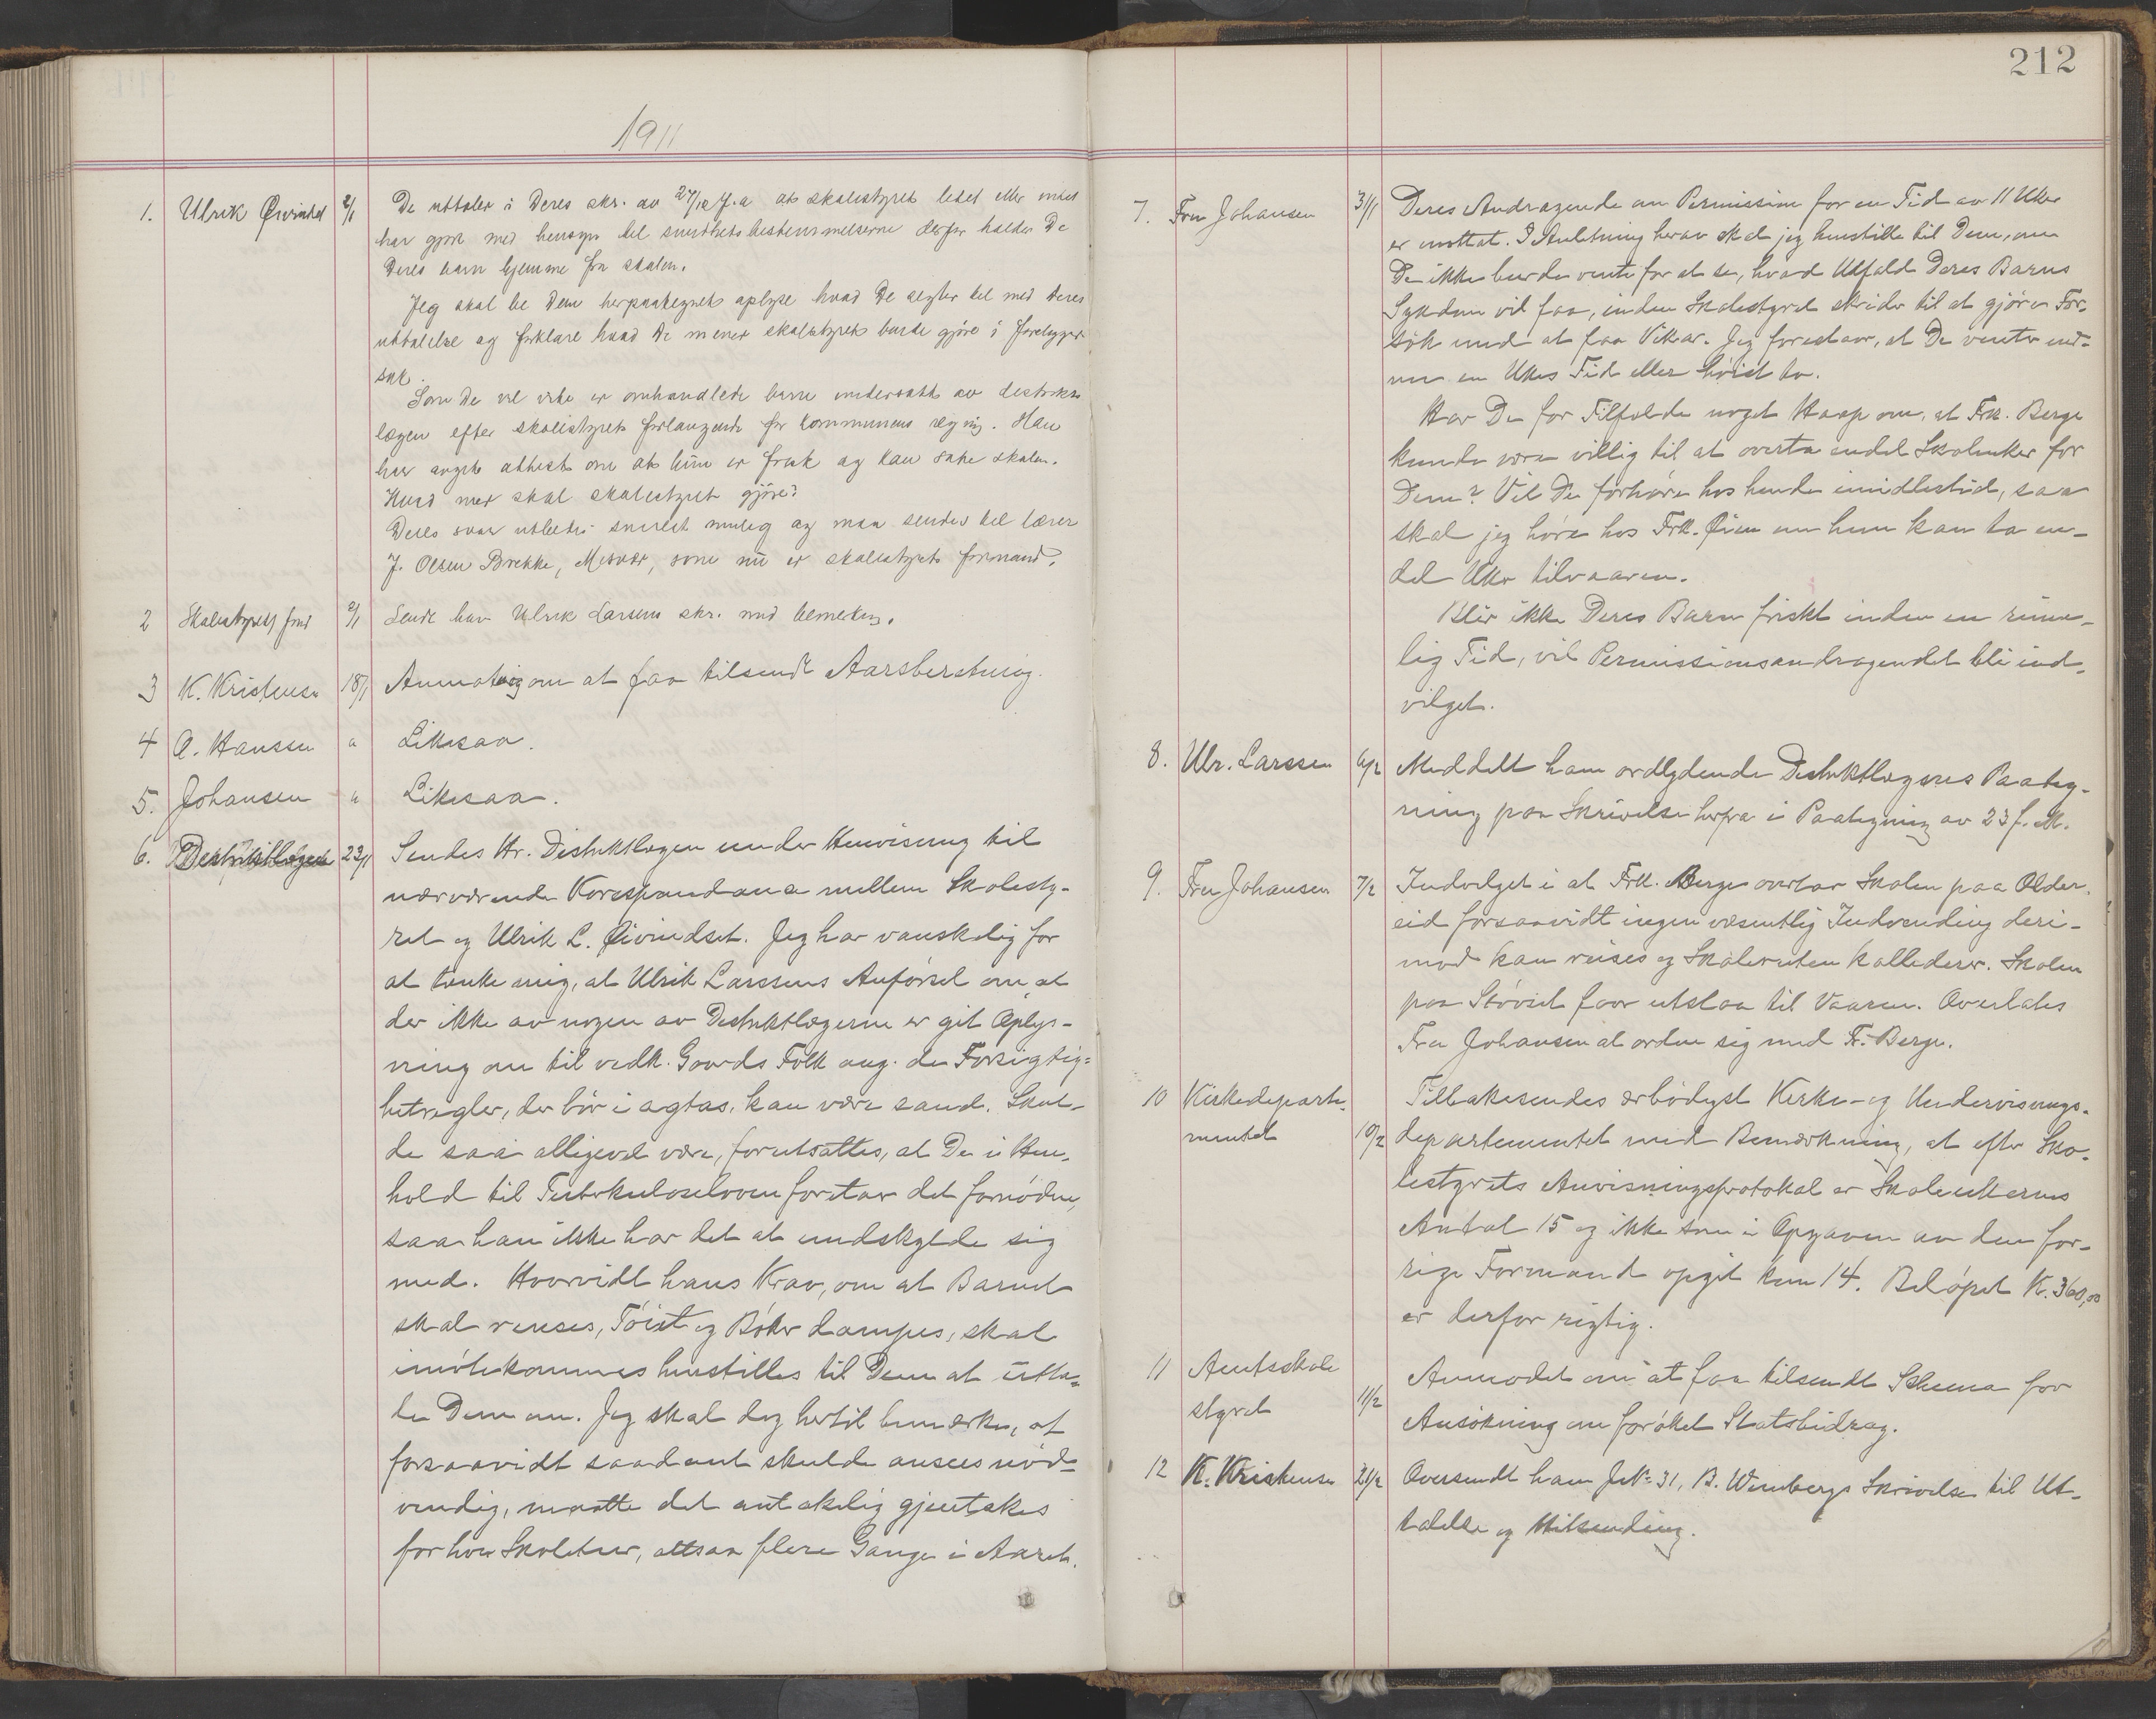 212
1911
1. Ulrik Øivindset 2/1 De uttaler i Deres skr. av 27/12 f.a at skolestyret litet eller intet
har gjort med hensyn til sundhetsbestemmelserne derfor holder De
Deres barn hjemme fra skolen.
Jeg skal be Dem herpaategnet oplyse hvad De sigter til med Deres
uttalelse og forklare hvad De mener skolestyret burde gjøre i foreliggende
sak.
Som De vel vite er omhandlede barn undersøkt av distrikts
lægen efter skolestyrets forlangende for kommunens regning. Han
har avgit attest om at hun er frisk og kan søke skolen.
Hvad mer skal skolestyret gjøre?
Deres svar utbedes snarest mulig og maa sendes til lærer
J. Olsen Brekke, Meøvær, som nu er skolestyrets formand.
2 Skolestyrets fmd 2/1 Sendt ham Ulrik Larsens skr. med bemerkn.
3 K. Kristensen 18/1 Anmodning om at faa tilsendt Aarsberetning.
4 A. Hanssen " Likesaa.
5. Johansen " Likesaa.
6. Distriktslægen 23/1 Sendes Hr. Distriktlægen under Henvisning til
nærværende Korrespondance mellem Skolesty-
ret og Ulrik L. Øivindset. Jeg har vanskelig for
at tænke mig, at Ulrik Larssens Anførsel om at
der ikke av nogen av Distriktlægerne er git Oplys-
ning om til vedk. Gaards Folk ang. de Forsigtig-
hetsregler, der bør iagtas, kan være sand. Skul-
de saa alligevel være, forutsættes, at De i Hen-
hold til Tuberkuloseloven foretar det fornødne,
saa han ikke har det at undskylde sig
med. Hvorvidt hans Krav, om at Barnet
skal renses, Tøiet og Bøker dampes, skal
imøtekommes henstilles til Dem at utta-
le Dem om. Jeg skal dog hertil bemærke, at
forsaavidt saadant skulde ansees nød-
vendig, maatte det antakelig gjentakes
for hver Skoletur, altsaa flere Gange i Aaret.
7. Fru Johansen 31/1 Deres Andragende om Permission for en Tid av 11 Uker
er mottat. I Anledning herav skal jeg henstille til Dem, om
De ikke burde vente for at se, hvad Utfald Deres Barns
Sykdom vil faa, inden Skolestyret skrider til at gjøre For-
søk med at faa Vikar. Jeg foreslaar, at De venter end-
nu en Ukes Tid eller høist to.
Har De for Tilfælde noget Haap om, at Frk. Berge
kunde være villig til at overta endel Skoleuker for
Dem? Vil De forhøre hos hende imidlertid, saa
skal jeg høre hos Frk. Øien om hun kan ta en-
del Uker tilvaaren.
Blir ikke Deres Barn friskt inden en rime-
lig Tid, vil Permissionsandragendet bli ind-
vilget.
8. Ulr. Larssen 6/2 Meddelt ham ordlydende Distriktlægenes Paateg-
ning paa Skrivelse herfra i Paategning av 23 f. M.
9. Fru Johansen 7/2 Indvilget i at Frk. Berge overtar Skolen paa Older-
eid forsaavidt ingen væsentlig Indvending deri-
mod kan reises og Skoleruten kalleder. Skolen
paa Størvid faar utstaa til Vaaren. Overlates
Fru Johansen at ordne sig med Fr. Berge.
10 Kirkedeparte- Tilbakesendes ærbødigst Kirke- og Undervisnings-
mentet 10/2 departementet med Bemærkning, at efter Sko-
lestyrets Anvisningsprotokol er Skoleukernes
Antal 15 og ikke som i Opgaven av den for-
rige Formand opgit kun 14. Beløpet K. 360,00
er derfor rigtig.
11 Amtsskole Anmodet om at faa tilsendt Schema for
styret 11/2 Ansøkning om forøket Statsbidrag.
12 K. Kristensen 21/2 Oversendt ham J№ 31, B. Winbergs Skrivelse til Ut-
talelse og tilsending.